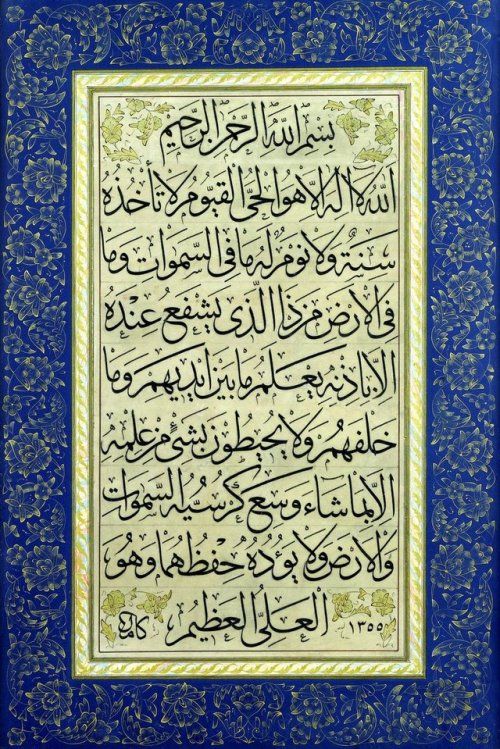 بسم الله الرحمن الرحيم
الله لا اله الا هو الحي القيوم لا تأخذه
سنة ولا نوم له ما في السموات وما
في الارض من ذا الذي يشفع عنده
الا باذنه يعلم ما بين ايديهم وما
خلفهم ولا يحيطون بشئ من علمه
الا بما شاء وسع كرسيه السموات
والارض ولا يؤده حفظهما وهو
١٣٥٥ العلي العظيم كامل